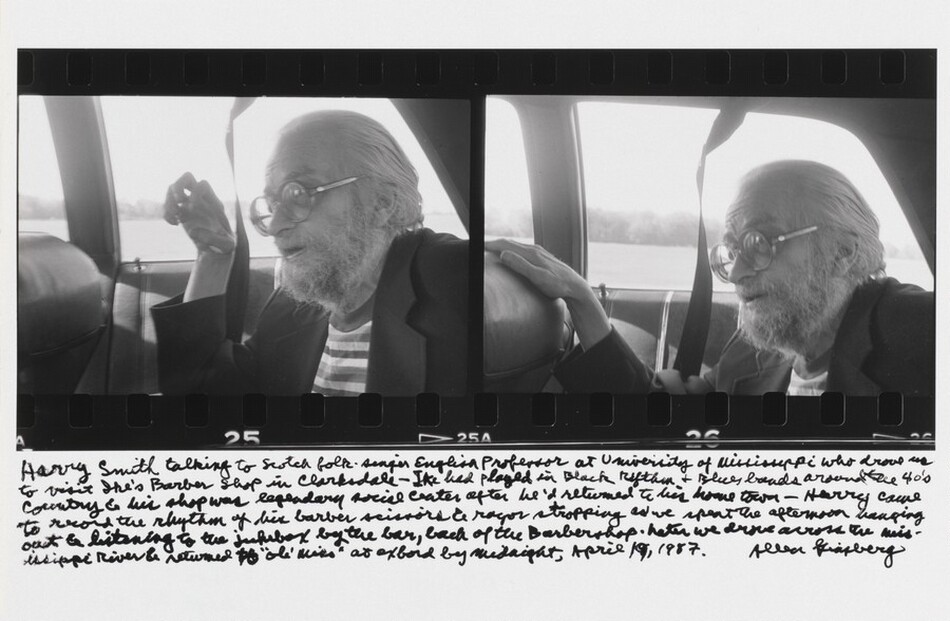 A
25
25A
26
26
Harry Smith talking to Scotch folk-singer English Professor at University of Mississippi who drove us
to visit Ike's Barber Shop in Clarksdale — Ike had played in Black Rhythm & Blues bands around the 40's
Country & his shop was legendary social center after he'd returned to his home town — Harry came
to record the rhythm of his barber scissors & razor stropping as we spent the afternoon hanging
out & listening to the jukebox by the bar, back of the Barbershop. Later we drove across the Miss-
issippi River & returned to "ole' miss" at oxbord by midnight, April 19, 1987. Allen Ginsberg